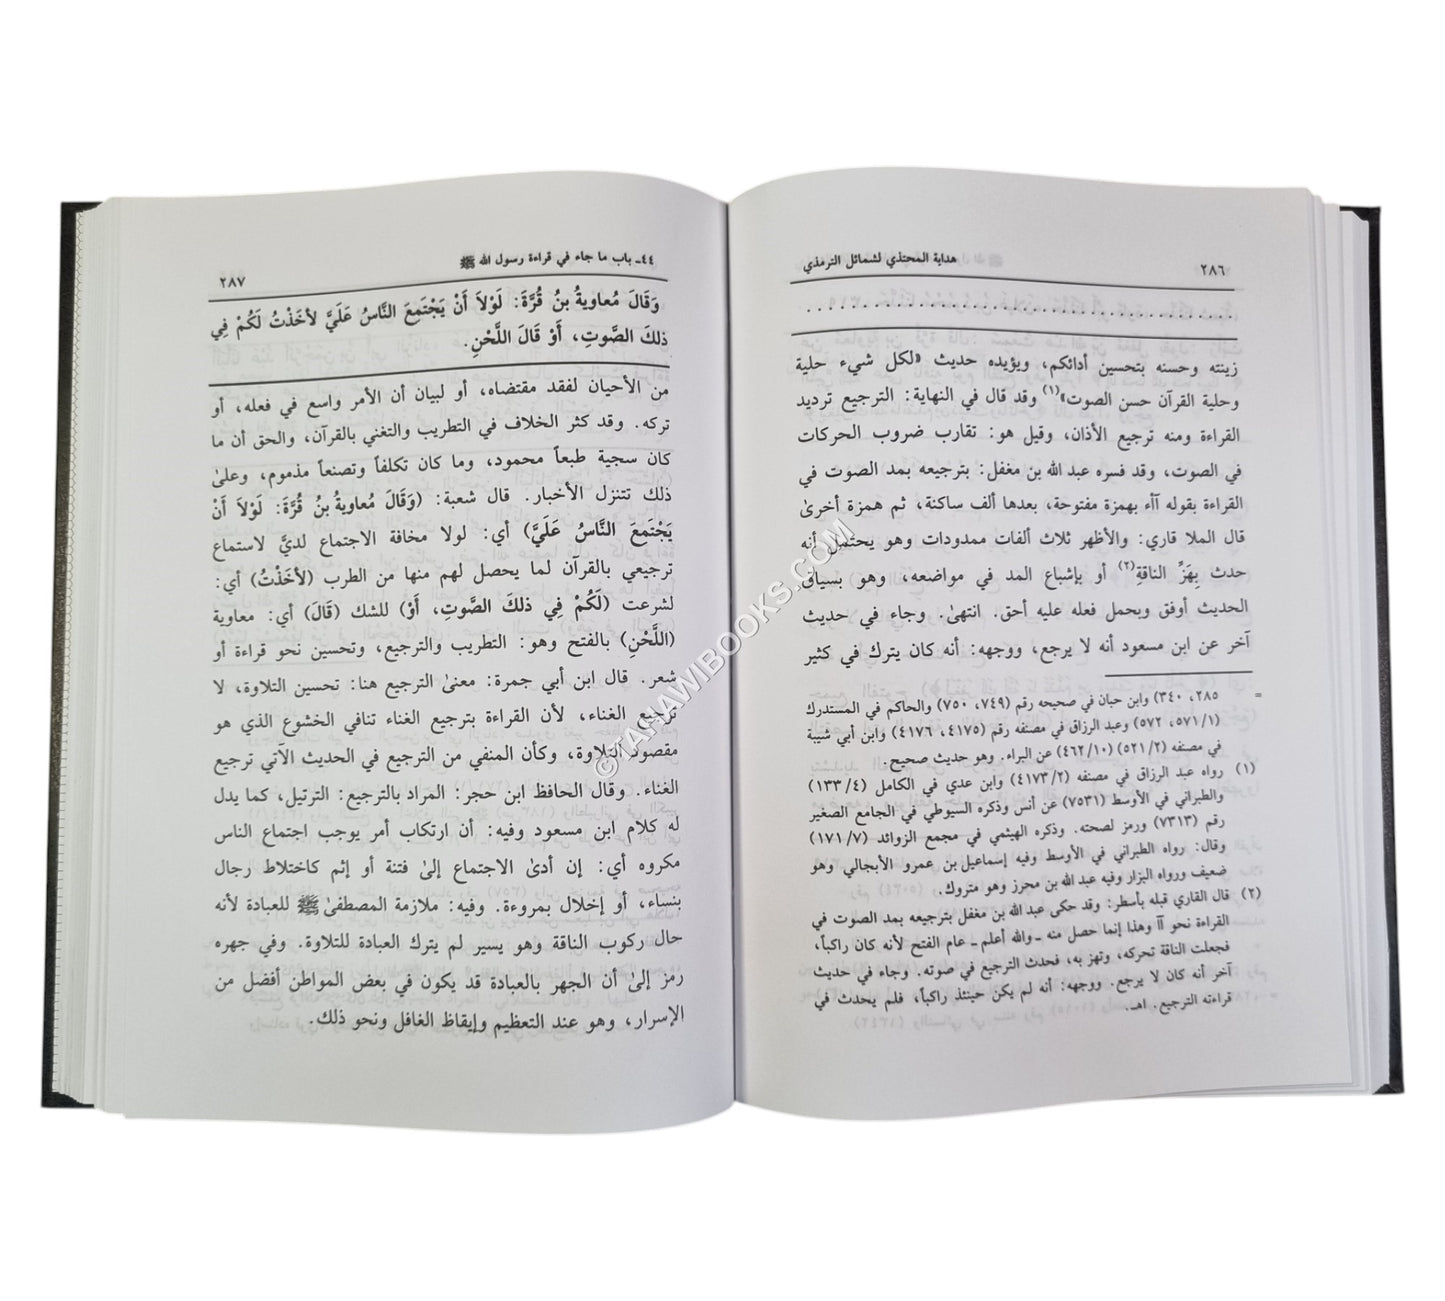 ٢٨٦ هداية المحتذي لشمائل الترمذي
. . . . . . . . . . . . . . . . . . . . . . . . . . . . . . . . . . . .
زينته وحسنه بتحسين أدائكم، ويؤيده حديث «لكل شيء حلية
وحلية القرآن حسن الصوت»(١) وقد قال في النهاية: الترجيع ترديد
القراءة ومنه ترجيع الأذان، وقيل هو: تقارب ضروب الحركات
في الصوت، وقد فسره عبد الله بن مغفل: بترجيعه بمد الصوت في
القراءة بقوله آآء بهمزة مفتوحة، بعدها ألف ساكنة، ثم همزة أخرىٰ
قال الملا قاري: والأظهر ثلاث ألفات ممدودات وهو يحتمل أنه
حدث بِهَزِّ الناقةِ(٢) أو بإشباع المد في مواضعه، وهو بسياق
الحديث أوفق وبحمل فعله عليه أحق. انتهىٰ. وجاء في حديث
آخر عن ابن مسعود أنه لا يرجع، ووجهه: أنه كان يترك في كثير
= ٢٨٥، ٣٤٠) وابن حبان في صحيحه رقم (٧٤٩، ٧٥٠) والحاكم في المستدرك
(٥٧١/١، ٥٧٢) وعبد الرزاق في مصنفه رقم (٤١٧٥، ٤١٧٦) وابن أبي شيبة
في مصنفه (٥٢١/٢) (٤٦٢/١٠) عن البراء. وهو حديث صحيح.
(١) رواه عبد الرزاق في مصنفه (٤١٧٣/٢) وابن عدي في الكامل (١٣٣/٤)
والطبراني في الأوسط (٧٥٣١) عن أنس وذكره السيوطي في الجامع الصغير
رقم (٧٣١٣) ورمز لصحته. وذكره الهيثمي في مجمع الزوائد (١٧١/٧)
وقال: رواه الطبراني في الأوسط وفيه إسماعيل بن عمرو الأبجالي وهو
ضعيف ورواه البزار وفيه عبد الله بن محرز وهو متروك.
(٢) قال القاري قبله بأسطر: وقد حكى عبد الله بن مغفل بترجيعه بمد الصوت في
القراءة نحو آآ وهذا إنما حصل منه ـ والله أعلم ـ عام الفتح لأنه كان راكباً،
فجعلت الناقة تحركه، وتهز به، فحدث الترجيع في صوته. وجاء في حديث
آخر أنه كان لا يرجع. ووجهه: أنه لم يكن حينئذ راكباً، فلم يحدث في
قراءته الترجيع. اهـ.
٤٤ـ باب ما جاء في قراءة رسول الله ﷺ ٢٨٧
وَقَالَ مُعاويةُ بنُ قُرَّةَ: لَوْلاَ أَنْ يَجْتَمِعَ النَّاسُ عَلَيَّ لأخَذْتُ لَكُمْ فِي
ذلكَ الصَّوتِ، أَوْ قَالَ اللَّحْنِ.
من الأحيان لفقد مقتضاه، أو لبيان أن الأمر واسع في فعله، أو
تركه. وقد كثر الخلاف في التطريب والتغني بالقرآن، والحق أن ما
كان سجية طبعاً محمود، وما كان تكلفاً وتصنعاً مذموم، وعلىٰ
ذلك تتنزل الأخبار. قال شعبة: (وَقَالَ مُعاويةُ بنُ قُرَّةَ: لَوْلاَ أَنْ
يَجْتَمعَ النَّاسُ عَلَيَّ) أي: لولا مخافة الاجتماع لديَّ لاستماع
ترجيعي بالقرآن لما يحصل لهم منها من الطرب (لأخَذْتُ) أي:
لشرعت (لَكُمْ فِي ذلكَ الصَّوتِ، أَوْ) للشك (قَالَ) أي: معاوية
(اللَّحْنِ) بالفتح وهو: التطريب والترجيع، وتحسين نحو قراءة أو
شعر. قال ابن أبي جمرة: معنىٰ الترجيع هنا: تحسين التلاوة، لا
ترجيع الغناء، لأن القراءة بترجيع الغناء تنافي الخشوع الذي هو
مقصود التلاوة، وكأن المنفي من الترجيع في الحديث الآتي ترجيع
الغناء. وقال الحافظ ابن حجر: المراد بالترجيع: الترتيل، كما يدل
له كلام ابن مسعود وفيه: أن ارتكاب أمر يوجب اجتماع الناس
مكروه أي: إن أدىٰ الاجتماع إلىٰ فتنة أو إثم كاختلاط رجال
بنساء، أو إخلال بمروءة. وفيه: ملازمة المصطفىٰ ﷺ للعبادة لأنه
حال ركوب الناقة وهو يسير لم يترك العبادة للتلاوة. وفي جهره
رمز إلىٰ أن الجهر بالعبادة قد يكون في بعض المواطن أفضل من
الإسرار، وهو عند التعظيم وإيقاظ الغافل ونحو ذلك.
©TAHAWIBOOKS.COM